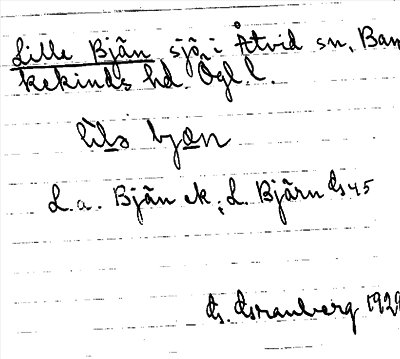 Lille Bjän sjö i Åtvid sn, Ban
kekinds hd. Ögl. l.
lìlə bjæn
L. a. Bjän ek; L. Bjärn ds 45
1929